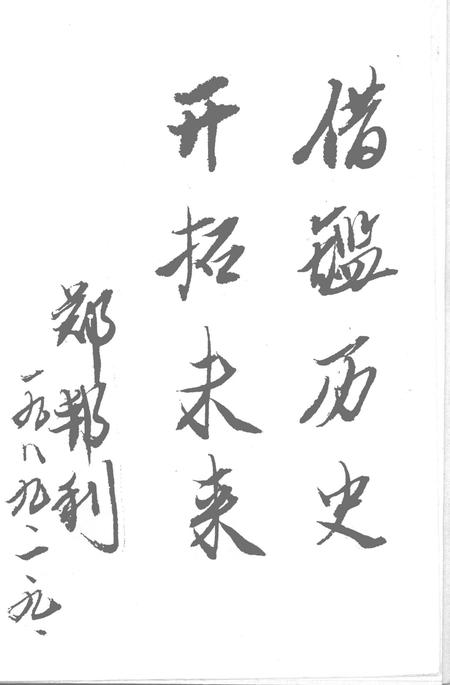 借鑑历史
开拓未来
郑邦利
一九八九.二.九.